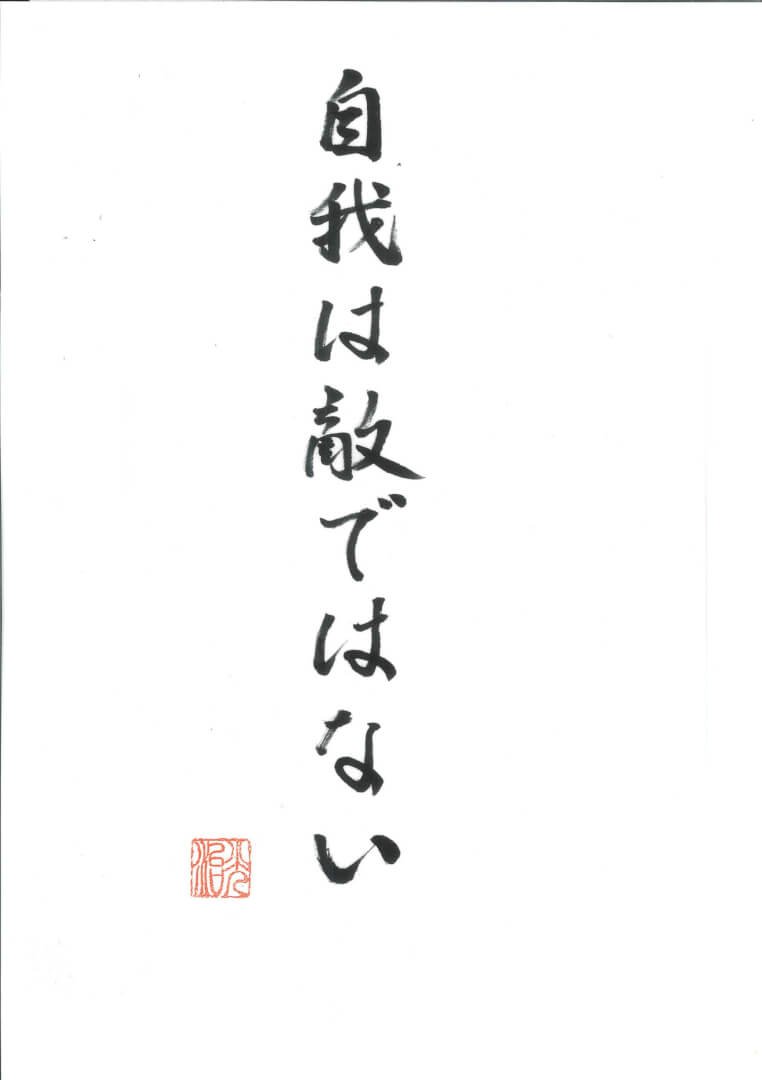 自我は敵ではない